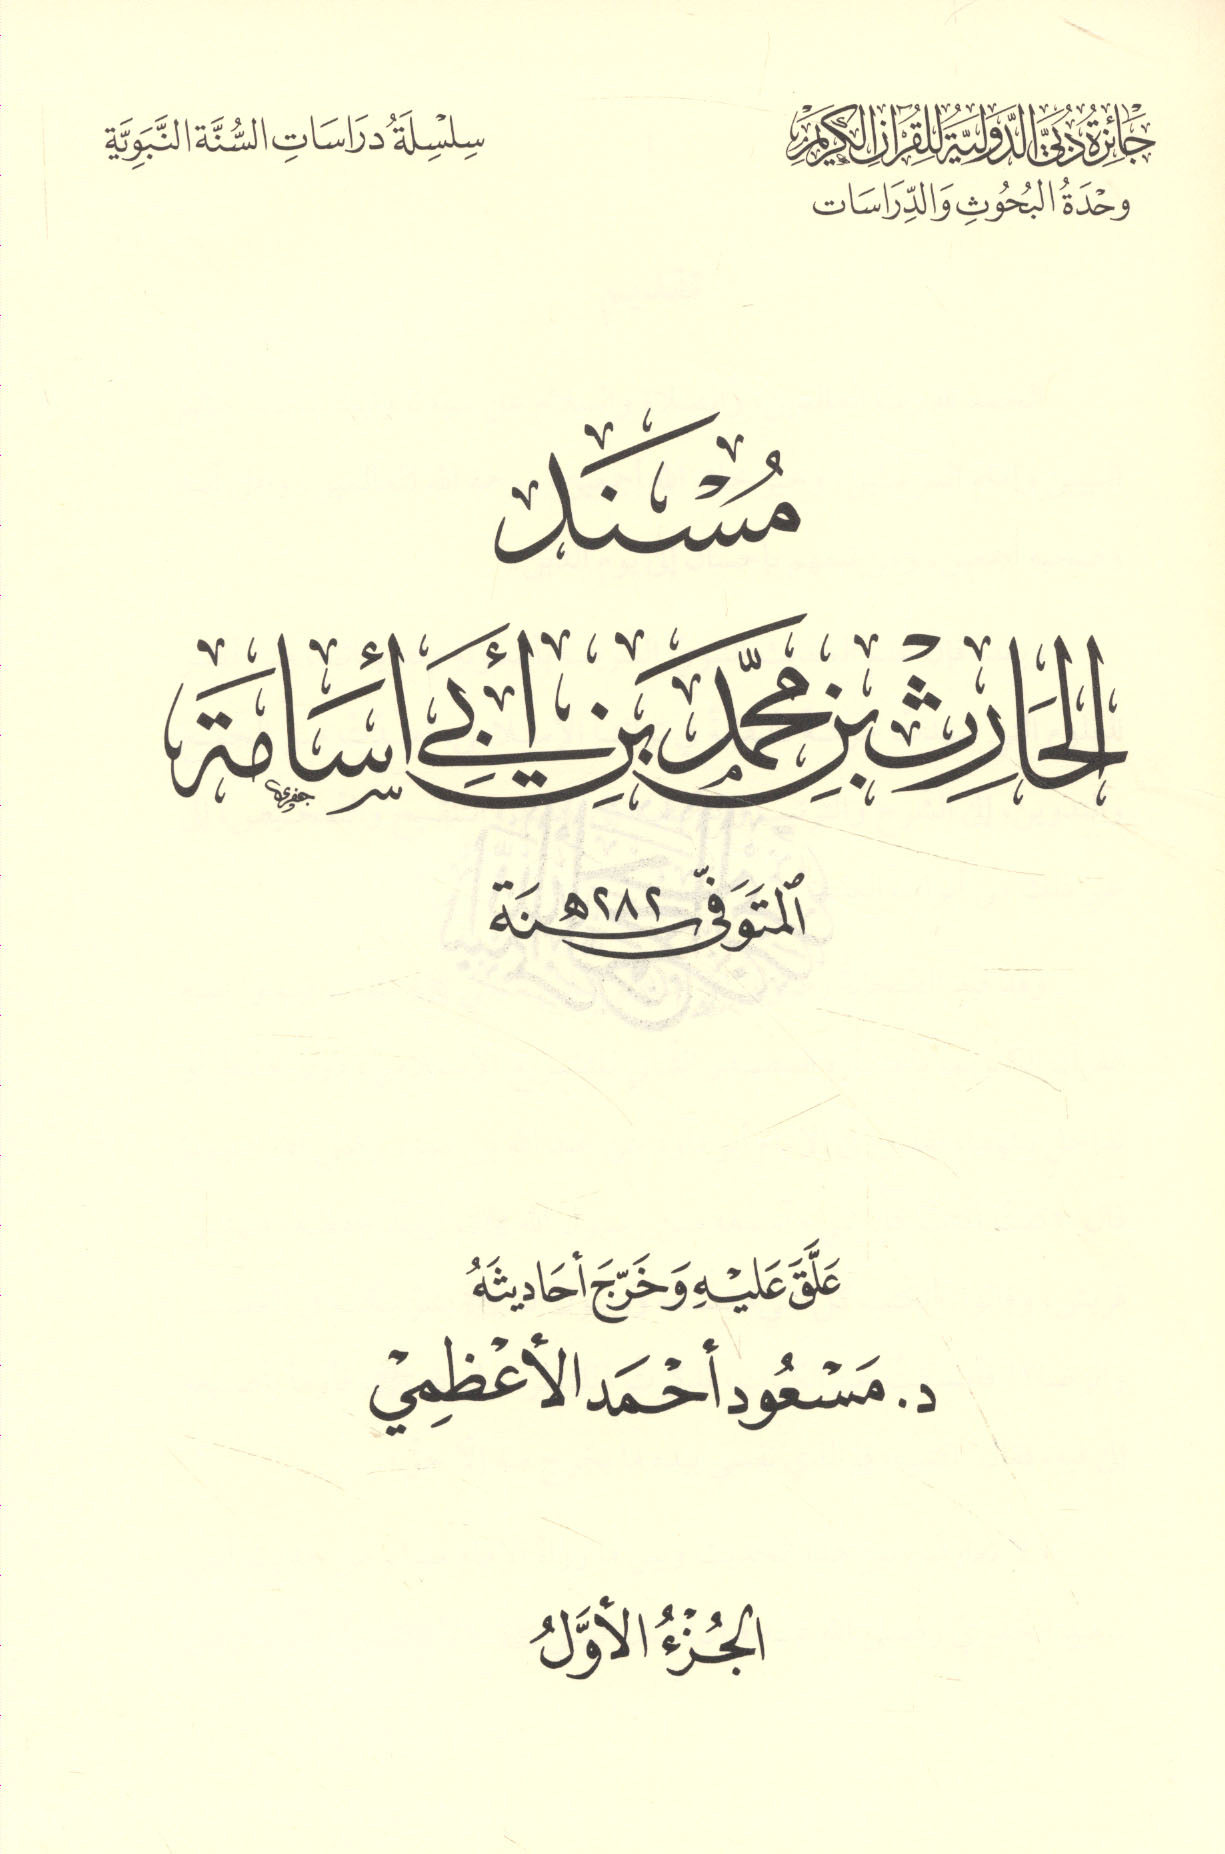 جَائِزَةُ دُبَيّ الدَّوْلِيَّة لِلْقُرْآنِ الكَرِيمِ
وحْدَةُ البُحُوثِ وَالدِّرَاسَات
سِلْسِلَةُ دِرَاسَاتِ السُّنَّة النَّبَوِيَّة
مُسْنَد
الحَارِث بْنِ مُحَمَّد بْنِ أَبِي أُسَامَة
جفري
المتَوَفّى سنَة ٢٨٢ه
عَلَّقَ عَلَيْهِ وَخَرَّجَ أحَاديثَهُ
د. مَسْعُود أَحْمَد الأَعْظَمِيْ
الجُزْءُ الأَوَّلُ